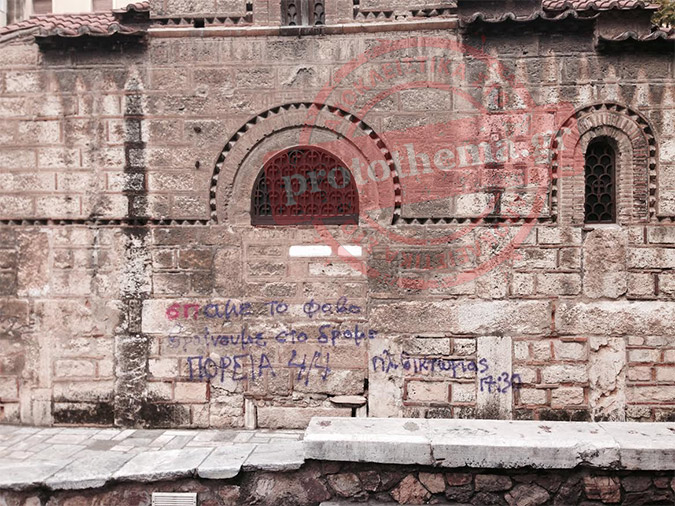 protothema.gr
σπαμε το φοβο
βγαίνουμε στο δρομο
ΠΟΡΕΙΑ 4/4 πλ. Βικτωριας
17:30